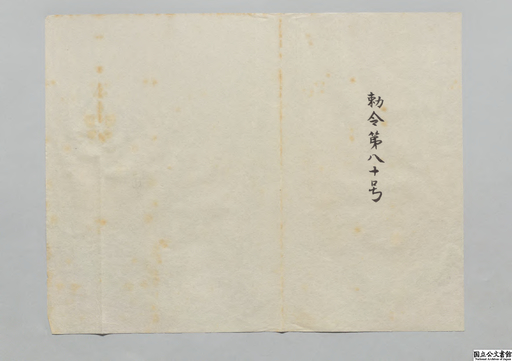 勅令第八十号
国立公文書館
National Archives of Japan